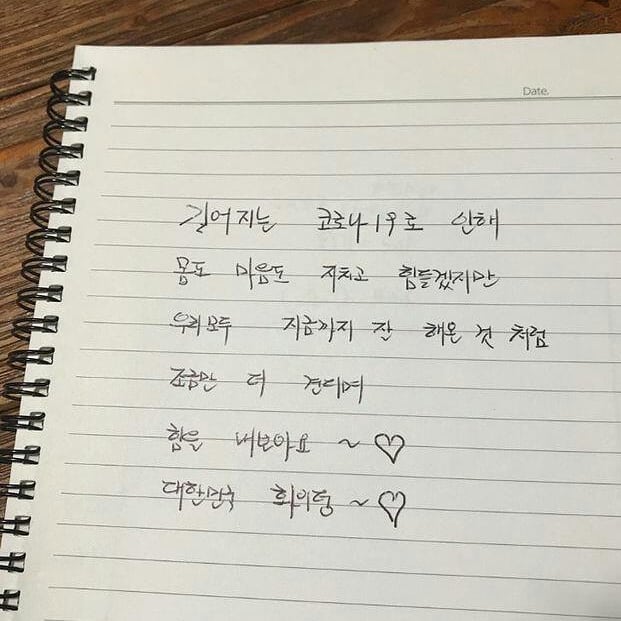 Date.
길어지는 코로나19로 인해
몸도 마음도 지치고 힘들겠지만
우리모두 지금까지 잘 해온 것 처럼
조금만 더 견디며
힘을 내보아요 ~ ♡
대한민국 화이팅 ~ ♡